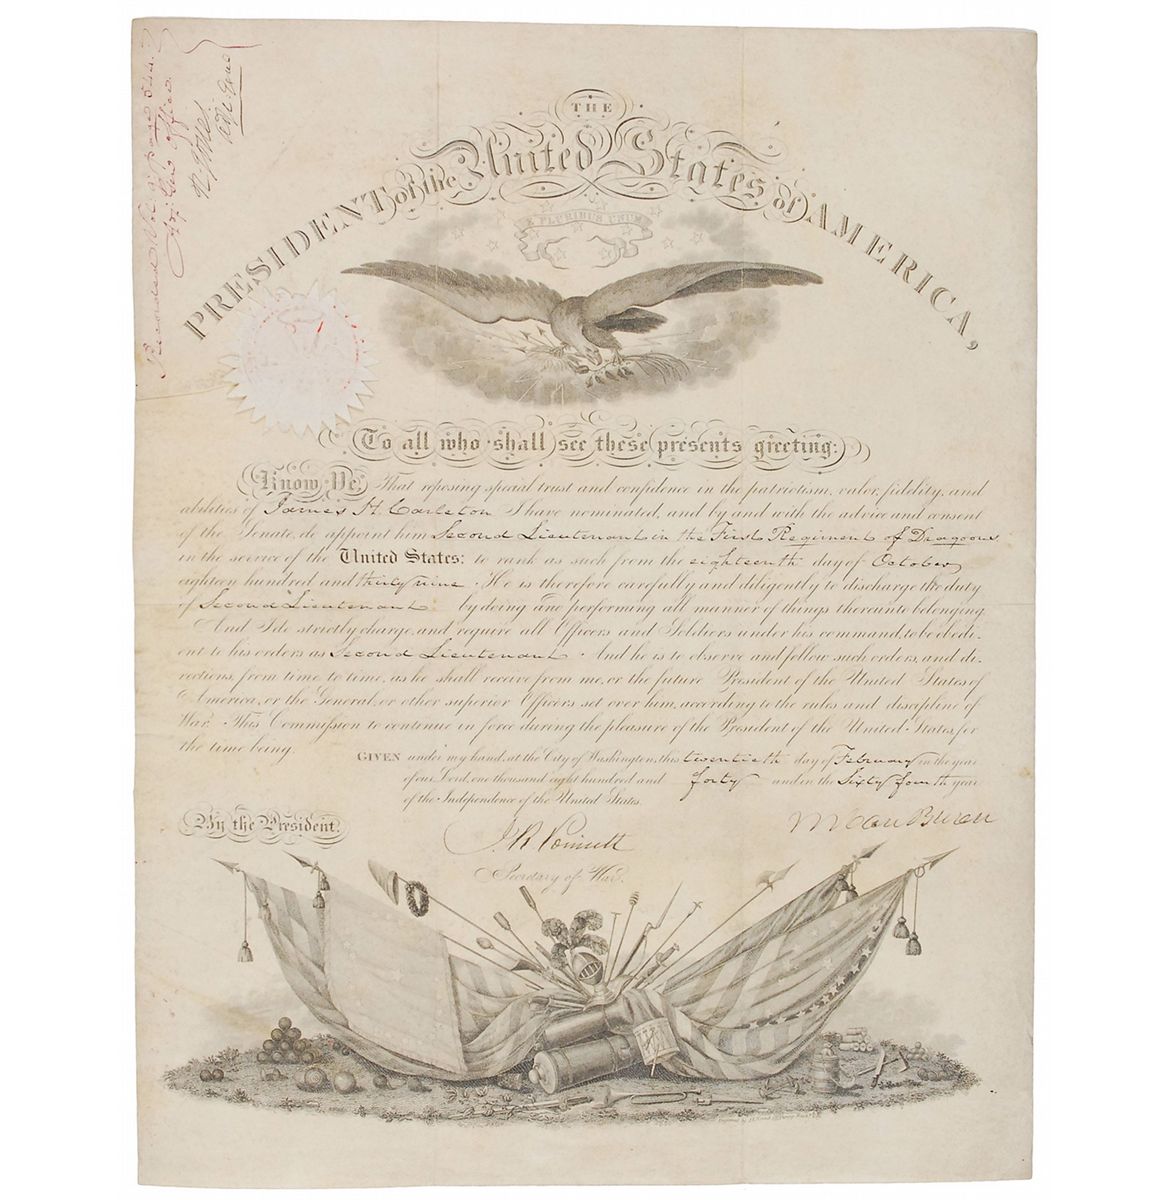 Recorded Vol 2. page 344.
Adj. Gen. Office.
R. Jones
Adj. Genl.
THE
PRESIDENT of the United States of AMERICA,
E PLURIBUS UNUM
To all who shall see these presents greeting:
Know Ye, That reposing special trust and confidence in the patriotism, valor, fidelity, and
abilities of James H. Carleton I have nominated, and by and with the advice and consent
of the Senate, do appoint him Second Lieutenant in the First Regiment of Dragoons
in the service of the United States: to rank as such from the eighteenth day of October
eighteen hundred and thirty nine. He is therefore carefully and diligently to discharge the duty
of Second Lieutenant by doing and performing all manner of things thereunto belonging.
And I do strictly charge, and require all Officers and Soldiers under his command, to be obedi-
ent to his orders as Second Lieutenant. And he is to observe and follow such orders, and di-
rections, from time to time, as he shall receive from me, or the future President of the United States of
America, or the General, or other superior Officers set over him, according to the rules and discipline of
War. This Commission to continue in force during the pleasure of the President of the United States, for
the time being.
GIVEN under my hand, at the City of Washington, this twentieth day of February in the year
of our Lord, one thousand eight hundred and forty and in the Sixty fourth year
of the Independence of the United States.
By the President.
M Van Buren
J. R. Poinsett
Secretary of War.